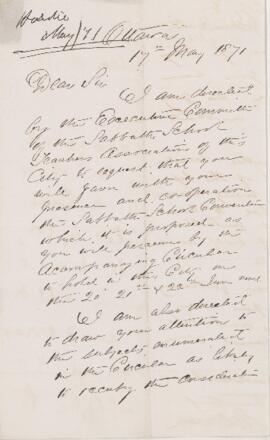 Hardie
May/71 Ottawa
17th May 1871
Dear Sir
I am directed
by the Executive Committee
of the Sabbath School
Teachers Association of this
City to request that you
will favor with your
presence and cooperation
the Sabbath School Convention
which it is proposed as
you will perceive by the
Accompanying Circular
to hold in this City on
the 20th 21st & 22nd June next
I am also directed
to draw your attention to
the subjects enumerated
in the Circular as likely
to occupy the consideration